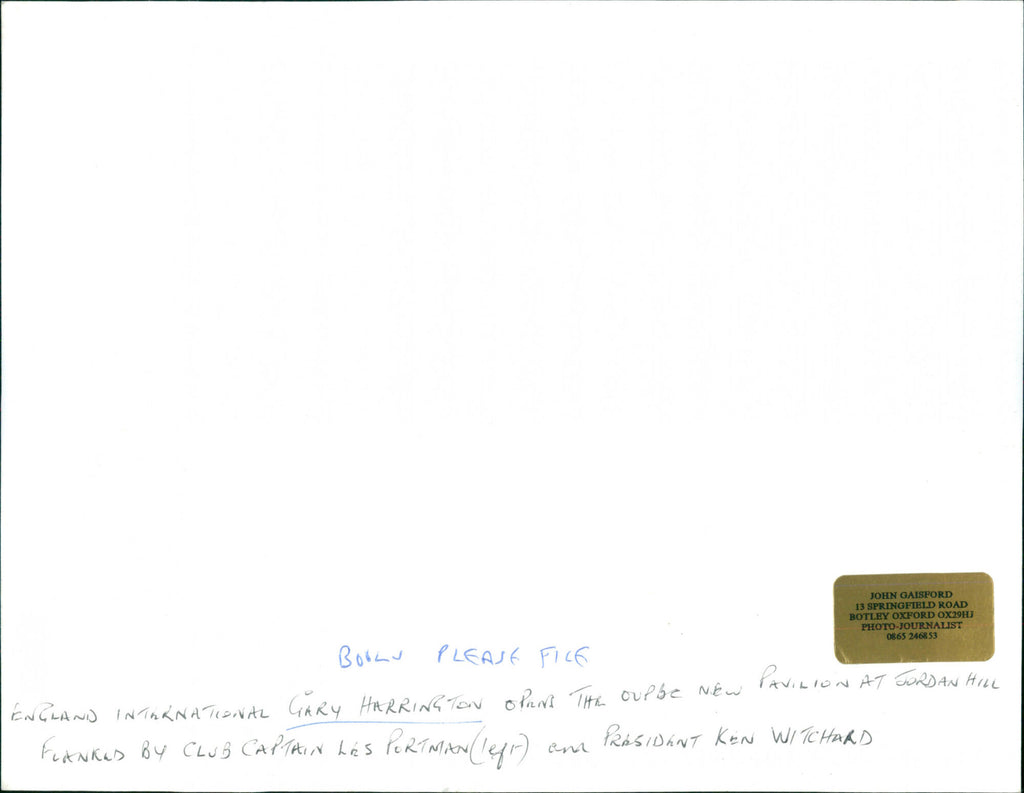 JOHN GAISFORD
13 SPRINGFIELD ROAD
BOTLEY OXFORD OX29HJ
PHOTO-JOURNALIST
0865 246853
BOWLS PLEASE FILE
ENGLAND INTERNATIONAL GARY HARRINGTON OPENS THE OUPBC NEW PAVILION AT JORDAN HILL
FLANKED BY CLUB CAPTAIN LES PORTMAN (left) and PRESIDENT KEN WITCHARD